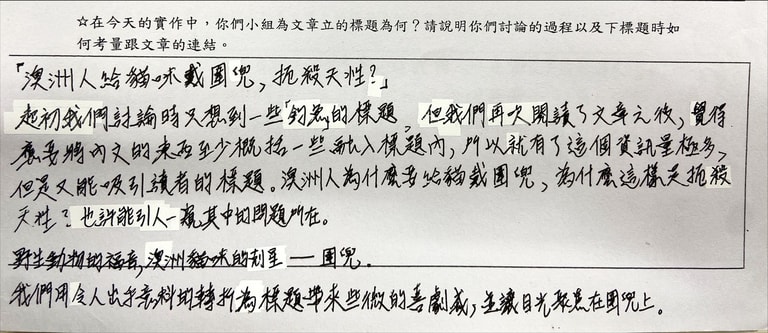 ☆在今天的實作中，你們小組為文章立的標題為何？請說明你們討論的過程以及下標題時如
何考量跟文章的連結。
「澳洲人給貓咪戴圍兜，扼殺天性？」
起初我們討論時只想到一些「釣魚」的標題，但我們再次閱讀了文章之後，覺得
應要將內文的東西至少概括一些融入標題內，所以就有了這個資訊量極多，
但是又能吸引讀者的標題。澳洲人為什麼要給貓戴圍兜，為什麼這樣是扼殺
天性？也許能引人一窺其中的問題所在。
野生動物的福音，澳洲貓咪的剋星——圍兜。
我們用令人出乎意料的轉折為標題帶來些微的喜劇感，並讓目光聚焦在圍兜上。